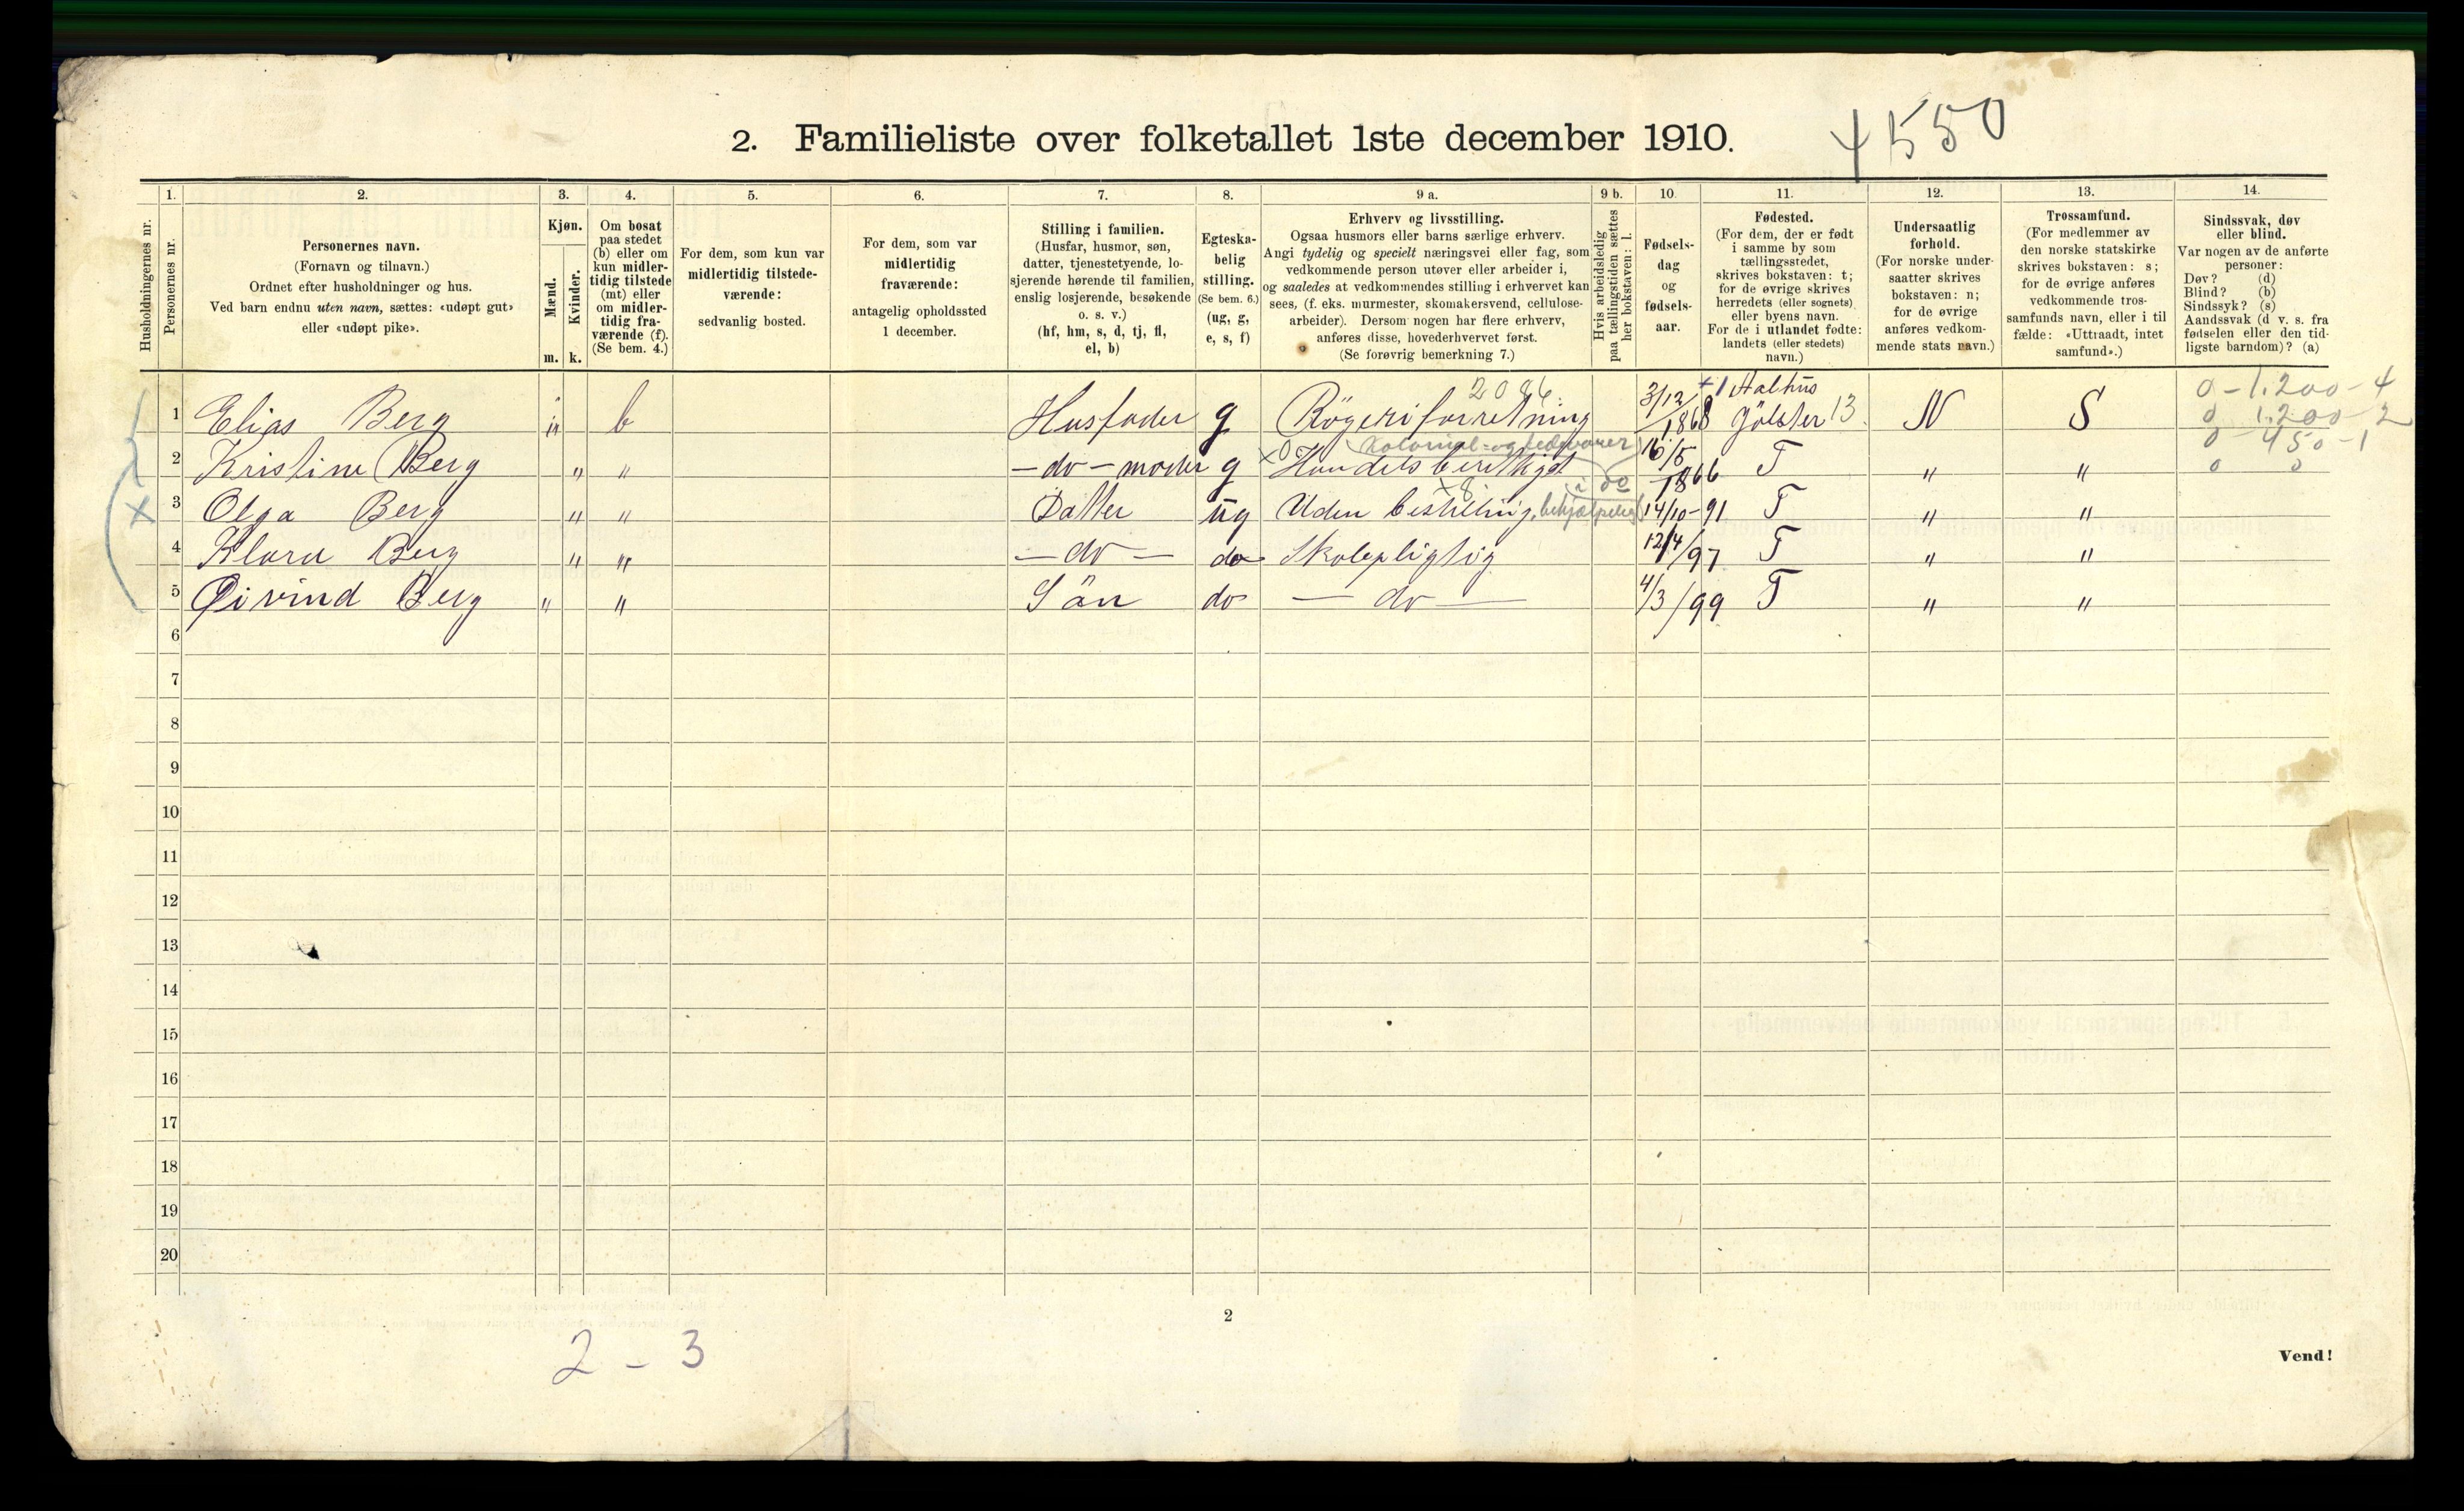 2. Familieliste over folketallet 1ste december 1910.
4550
1. 2. 3. 4. 5. 6. 7. 8. 9 a. 9 b. 10. 11. 12. 13. 14.
Husholdningernes nr.
Personernes nr.
Personernes navn.
(Fornavn og tilnavn.)
Ordnet efter husholdninger og hus.
Ved barn endnu uten navn, sættes: «udøpt gut»
eller «udøpt pike».
Kjøn.
Mænd.
Kvinder.
m. k.
Om bosat
paa stedet
(b) eller om
kun midler-
tidig tilstede
(mt) eller
om midler-
tidig fra-
værende (f).
(Se bem. 4.)
For dem, som kun var
midlertidig tilstede-
værende:
sedvanlig bosted.
For dem, som var
midlertidig
fraværende:
antagelig opholdssted
1 december.
Stilling i familien.
(Husfar, husmor, søn,
datter, tjenestetyende, lo-
sjerende hørende til familien,
enslig losjerende, besøkende
o. s. v.)
(hf, hm, s, d, tj, fl,
el, b)
Egteska-
belig
stilling.
(Se bem. 6.)
(ug, g,
e, s, f)
Erhverv og livsstilling.
Ogsaa husmors eller barns særlige erhverv.
Angi tydelig og specielt næringsvei eller fag, som
vedkommende person utøver eller arbeider i,
og saaledes at vedkommendes stilling i erhvervet kan
sees, (f. eks. murmester, skomakersvend, cellulose-
arbeider). Dersom nogen har flere erhverv,
anføres disse, hovederhvervet først.
(Se forøvrig bemerkning 7.)
Hvis arbeidsledig
paa tællingstiden sættes
her bokstaven: l.
Fødsels-
dag
og
fødsels-
aar.
Fødested.
(For dem, der er født
i samme by som
tællingsstedet,
skrives bokstaven: t;
for de øvrige skrives
herredets (eller sognets)
eller byens navn.
For de i utlandet fødte:
landets (eller stedets)
navn.)
Undersaatlig
forhold.
(For norske under-
saatter skrives
bokstaven: n;
for de øvrige
anføres vedkom-
mende stats navn.)
Trossamfund.
(For medlemmer av
den norske statskirke
skrives bokstaven: s;
for de øvrige anføres
vedkommende tros-
samfunds navn, eller i til
fælde: «Uttraadt, intet
samfund».)
Sindssvak, døv
eller blind.
Var nogen av de anførte
personer:
Døv? (d)
Blind? (b)
Sindssyk? (s)
Aandssvak (d v. s. fra
fødselen eller den tid-
ligste barndom)? (a)
2086 +1 Aalhus 0-1.200-4
1 Elias Berg " b Husfader g Rögeriforretning 3/12/1868 Jölster 13 N S 0 1.200-2
Kolonial- og fedevarer 0 450-1
2 Kristine Berg " " -do-moder g x0 Handelsberettiget 16/5 1866 T " " 0 0
x8 i do
3 Olga Berg " " Datter ug Uden bestilling, behjælpelig 14/10-91 T " "
4 Klara Berg " " -do- do Skolepligtig 12/4/97 T " "
5 Øivind Berg " " Sön do - do - 4/3/99 T " "
6
7
8
9
10
11
12
13
14
15
16
17
18
19
20
2
2 - 3
Vend!